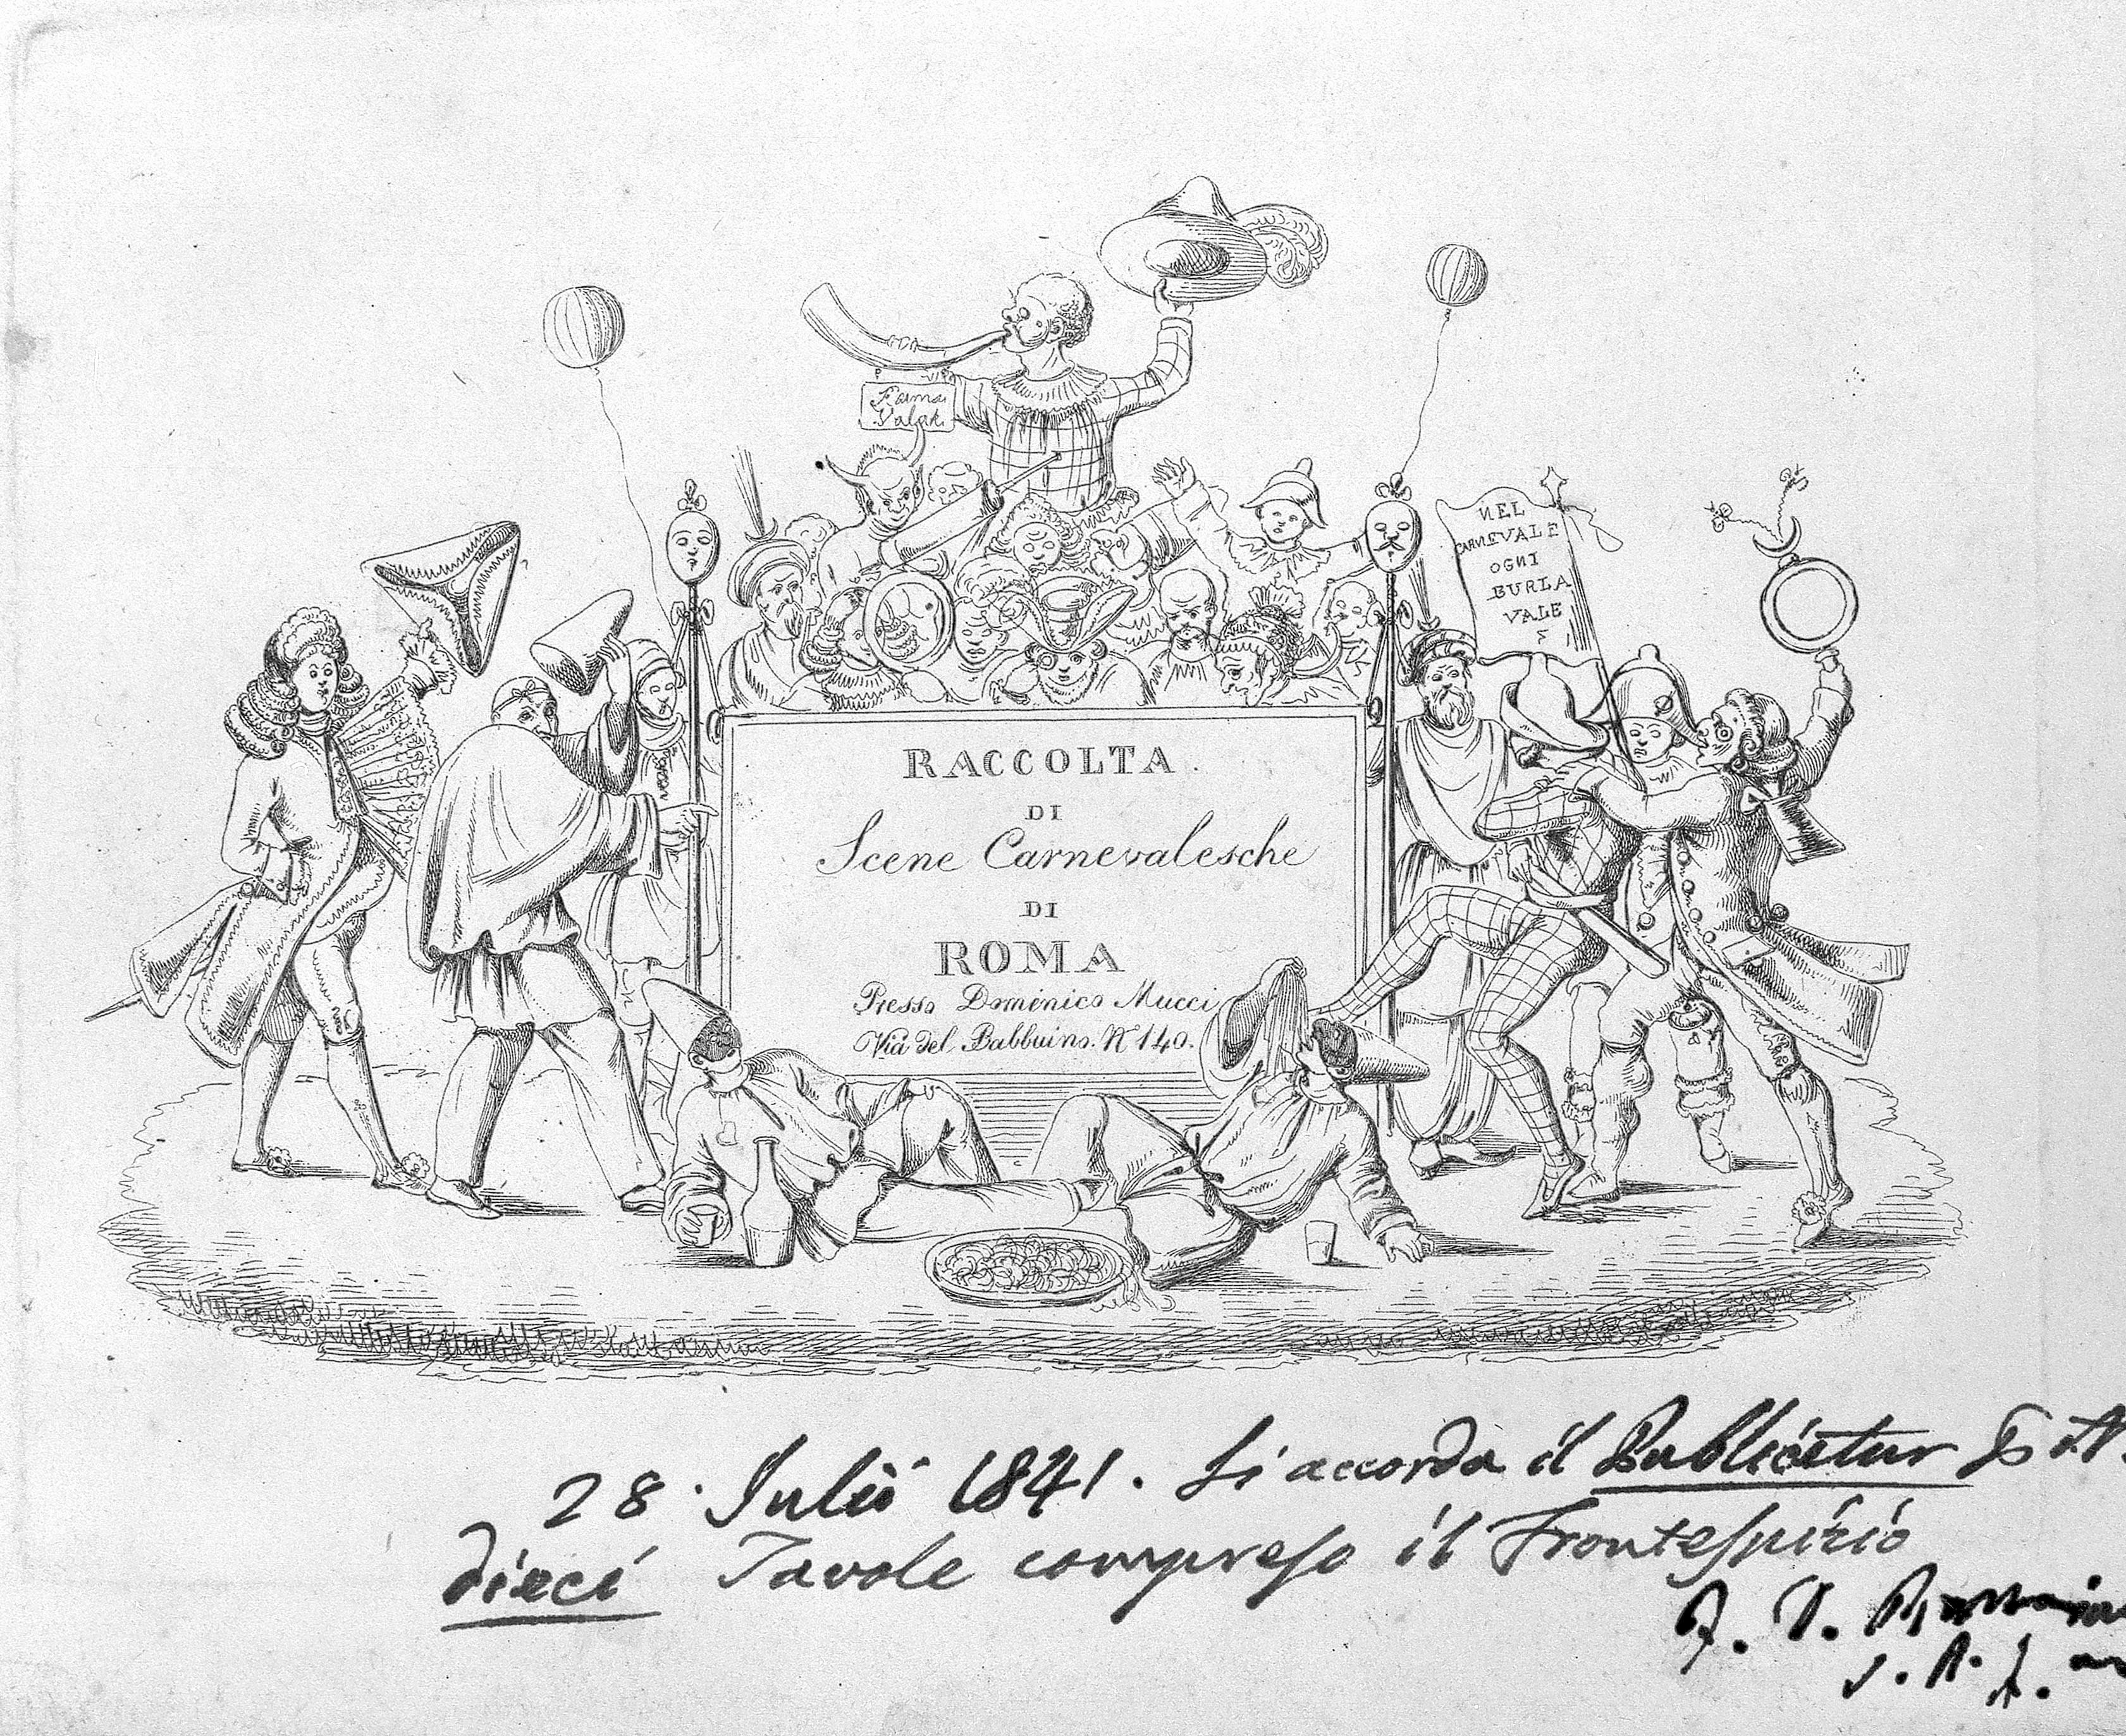 Fama
NEL
CARNEVALE
OGNI
BURLA
VALE
RACCOLTA.
DI
Scene Carnevalesche
DI
ROMA
Presso Domenico Mucci
Via del Babbuino. N 140.
28. Julii 1841. Si accorda il Publicetur
dieci Tavole compreso il Frontespizio